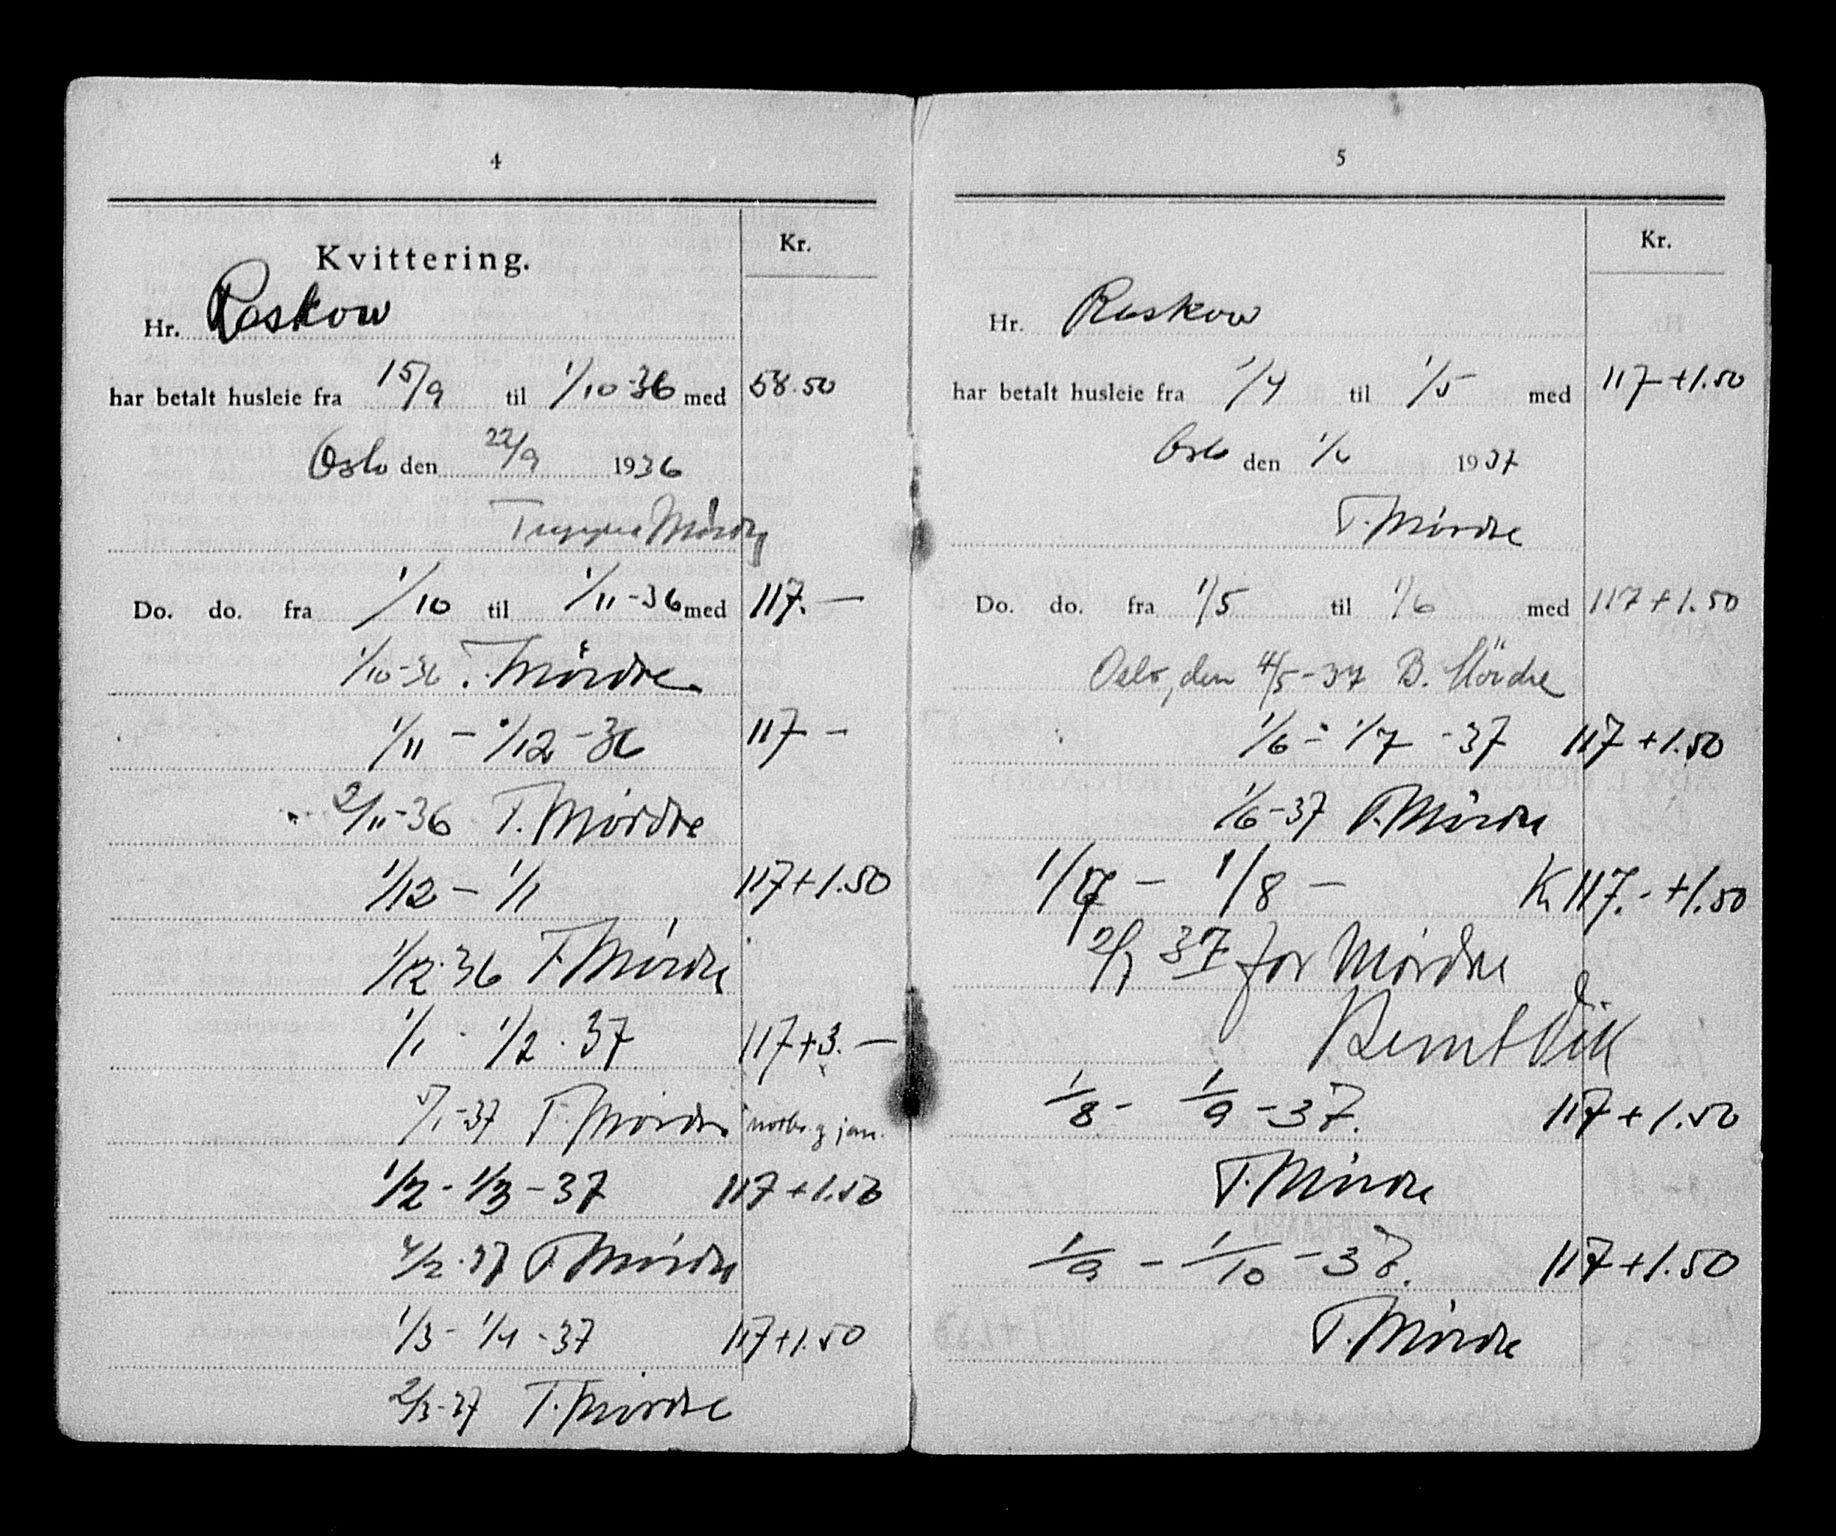 4
Kvittering.
Kr.
Hr. Raskow
har betalt husleie fra 15/9 til 1/10-36 med 58.50
Oslo den 22/9 1936
Mørdre
Do. do. fra 1/10 til 1/11-36 med 117.—
1/10-36 T. Mørdre
1/11 – 1/12 - 36 117 –
2/11-36 T. Mørdre
1/12 – 1/1 117+1.50
1/12-36 T. Mørdre
1/1 - 1/2 . 37 117+3.—
5/1-37 T. Mørdre jan.
1/2 - 1/3 - 37 117+1.50
4/2-37 T. Mørdre
1/3 - 1/4 - 37 117+1.50
2/3-37 T. Mørdre
5
Kr.
Hr. Raskow
har betalt husleie fra 1/4 til 1/5 med 117+1.50
Oslo den 1937
T. Mørdre
Do. do. fra 1/5 til 1/6 med 117+1.50
Oslo, den 4/5-37 B. Mördre
1/6 - 1/7 - 37 117+1.50
1/6-37 T. Mørdre
1/7 – 1/8 – Kr 117.- +1.50
2/7 37 for Mørdre
Bernt
1/8 - 1/9 - 37. 117+1.50
T. Mørdre
1/9 - 1/10 - 37. 117+1.50
T. Mørdre